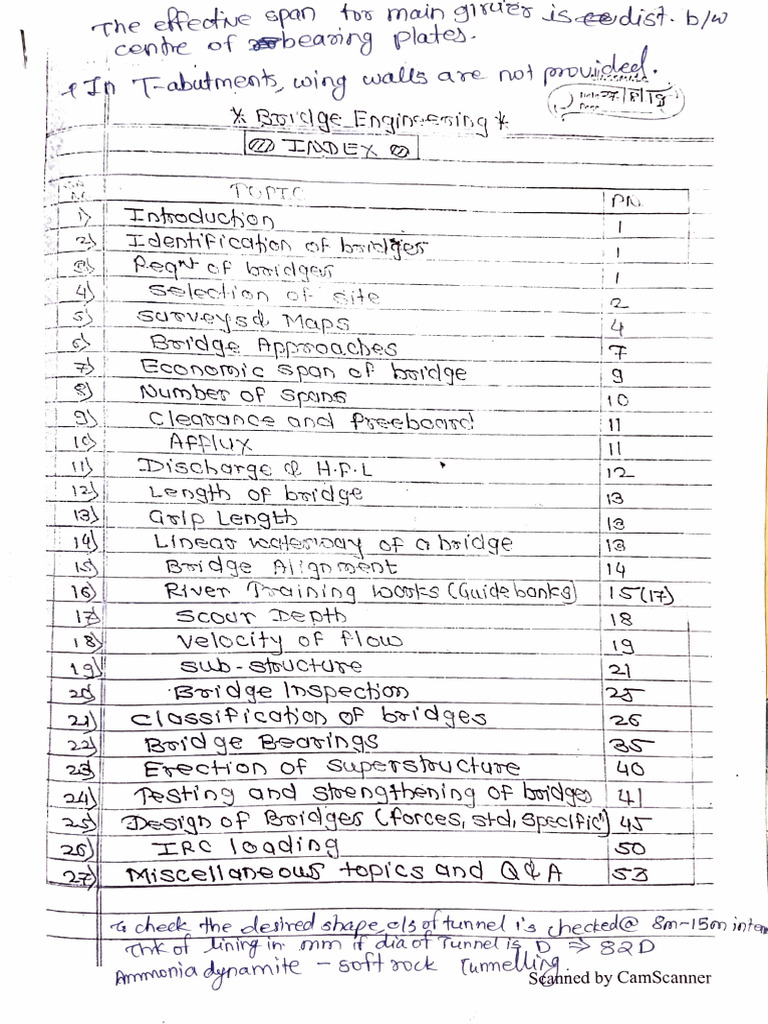 The effective span for main girder is dist. b/w
centre of bearing plates.
* In T-abutments, wing walls are not provided.
* Bridge Engineering *
INDEX
TOPIC PN.
1) Introduction 1
2) Identification of bridges 1
3) Reqnt of bridges 1
4) Selection of site 2
5) Surveys & Maps 4
6) Bridge Approaches 7
7) Economic span of bridge 9
8) Number of spans 10
9) Clearance and freeboard 11
10) Afflux 11
11) Discharge & H.F.L 12
12) Length of bridge 13
13) Grip Length 13
14) Linear waterway of a bridge 13
15) Bridge Alignment 14
16) River Training works (Guidebanks) 15(17)
17) Scour Depth 18
18) Velocity of flow 19
19) Sub-structure 21
20) Bridge Inspection 25
21) Classification of bridges 26
22) Bridge Bearings 35
23) Erection of superstructure 40
24) Testing and strengthening of bridges 41
25) Design of Bridges (forces, std, specific) 45
26) IRC loading 50
27) Miscellaneous topics and Q & A 53
To check the desired shape, c/s of tunnel is checked @ 8m-15m inter
Thk of lining in mm if dia of Tunnel is D ⇒ 82D
Ammonia dynamite - soft rock Tunnelling.
Scanned by CamScanner